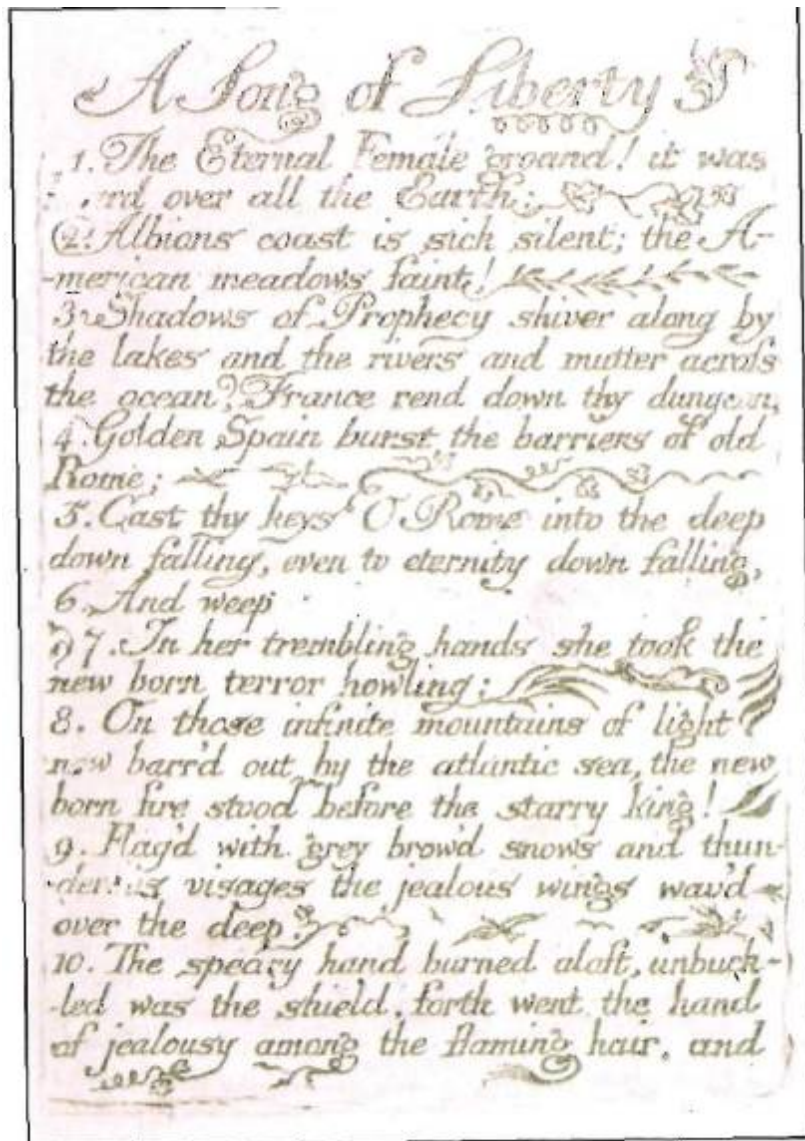 A Song of Liberty
1. The Eternal Female groand! it was
over all the Earth:
2. Albions coast is sick silent; the A-
-merican meadows faint!
3 Shadows of Prophecy shiver along by
the lakes and the rivers and mutter across
the ocean? France rend down thy dungeon,
4. Golden Spain burst the barriers of old
Rome;
5. Cast thy keys O Rome into the deep
down falling, even to eternity down falling,
6. And weep
7. In her trembling hands she took the
new born terror howling;
8. On those infinite mountains of light
now barr'd out by the atlantic sea, the new
born fire stood before the starry king!
9. Flag'd with grey brow'd snows and thun-
visages the jealous wings wav'd
over the deep
10. The speary hand burned aloft, unbuck-
-led was the shield, forth went the hand
of jealousy among the flaming hair, and